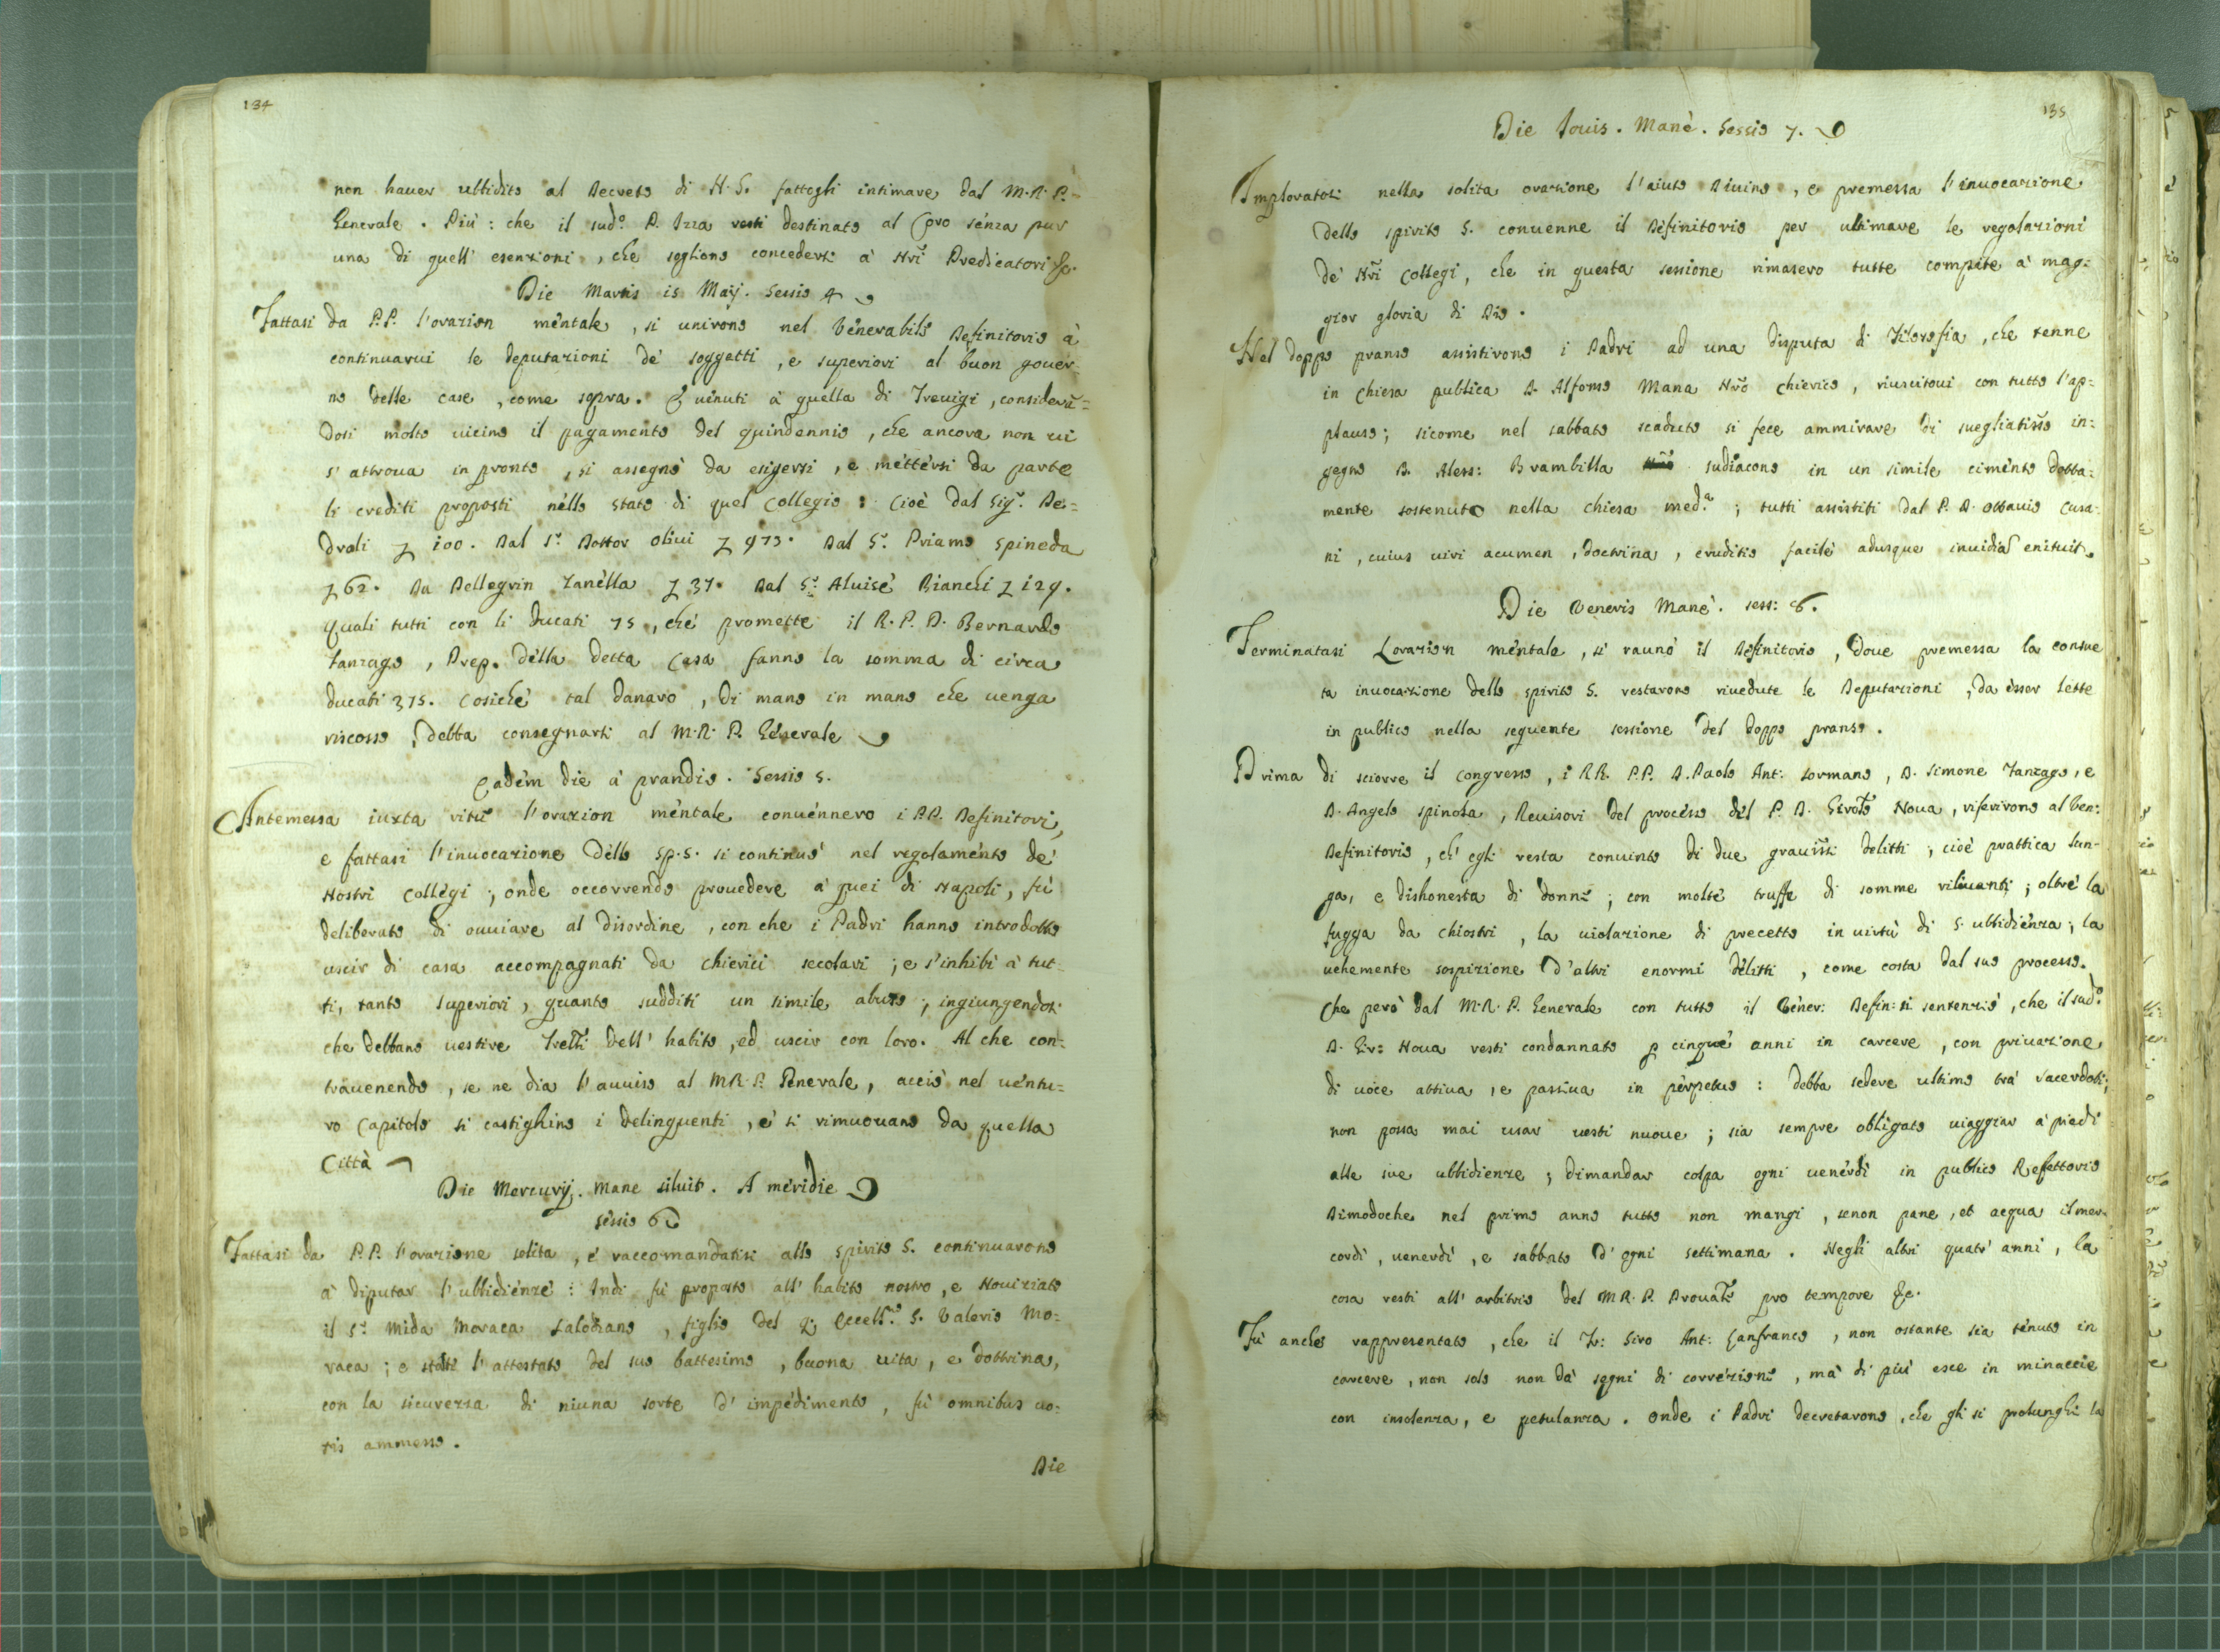 134
non hauer ubbidito al Decreto di N. S. fattogli intimare dal M. R. P.
Generale. Più: che il sud.º P. Izza resti destinato al Coro senza pur
una di quell' esenzioni, che sogliono concedersi à Nr̃i Predicatori &c.
Die Martis is Maij. Sessio 4
Fattasi da P.P. l'orazion mentale, si unirono nel Venerabile Definitorio à
continuarui le deputazioni de' soggetti, e superiori al buon gouer-
no delle case, come sopra. E uinuti à quella di Treuigi, considerã=
dosi molto uicino il pagamento del quindennio, che ancora non ui
s' attroua in pronto, si assegnò da esigersi, e mettersi da parte
li crediti proposti nello stato di quel Collegio: Cioè dal Sig.r De=
droli 100. Dal S.r Dottor Oliui 973. Dal S.r Priamo Spineda
62. Da Pellegrin Zanella 37. Dal S.r Aluise Bianchi 129.
Quali tutti con li Ducati 75, che promette il R. P. D. Bernardo
Zanzago, Prep. della detta Casa fanno la somma di circa
ducati 375. Cosiche tal danaro, di mano in mano che uenga
riscosso, debba consegnarsi al M. R. P. Generale
Eadem die à prandio. Sessio 5.
Antemessa iuxta ritũ l'orazion mentale conuennero i PP. Definitori,
e fattasi l'inuocazione dello Sp. S. si continuò nel regolamento de'
Nostri Collegi; onde occorrendo prouedere à quei di Napoli, fù
deliberato di ouuiare al disordine, con che i Padri hanno introdotto
uscir di casa accompagnati da Chierici secolari; e s'inhibì à tut-
ti, tanto Superiori, quanto sudditi un simile abuso; ingiungendosi
che debbano uestire Frelli dell' habito, ed uscir con loro. Al che con-
trauenendo, se ne dia l'auuiso al M. R. P. Generale, acciò nel uentu=
ro Capitolo si castighino i delinquenti, e si rimuouano da quella
Città
Die Mercurij. Mane siluit. A meridie
Sessio 6
Fattasi da P.P. l'orazione solita, e raccomandatisi allo Spirito S. continuarono
à diputar l'ubbidienze: Indi fù proposto all' habito nostro, e Nouiziato
il S.r Mida Moraca Salodiano, figlio del q. Eccell.º S. Valerio Mo=
raca; e stosti l'attestato del suo battesimo, buona uita, e dottrina,
con la sicurezza di niuna sorte d' impedimento, fù omnibus uo=
tis ammesso.
Die
135
Die Iouis. Manè. Sessio 7.
Imploratosi nella solita orazione l'aiuto Diuino, e premessa l'inuocazione
dello Spirito S. conuenne il Definitorio per ultimare le regolazioni
de' Nr̃i Collegi, che in questa sessione rimasero tutte compite à mag=
gior gloria di Dio.
Nel doppo pranso assistirono i Padri ad una disputa di Filosofia, che tenne
in Chiesa publica D. Alfonso Mana Nr̃o Chierico, riuscitoui con tutto l'ap=
plauso; sicome nel sabbato scaduto si fece ammirare di suegliatis̃o in=
gegno D. Aless: Brambilla sudiacono in un simile cimento dotta=
mente sostenuto nella chiesa med.ª; tutti assistiti dal P. D. Ottauio Cusa=
ni, cuius uiri acumen, doctrina, eruditio facilè adusque inuidiã enituit.
Die Veneris Manè. Sess: 8.
Terminatasi L'orazion mentale, si raunò il Definitorio, doue premessa la consue
ta inuocazione dello Spirito S. restarono riuedute le Deputazioni, da esser lette
in publico nella seguente sessione del doppo pranso.
Prima di sciorre il Congresso, i RR. PP. D. Paolo Ant: Sormano, D. Simone Zanzago, e
D. Angelo Spinola, Reuisori del processo del P. D. Girolº Noua, riferirono al Ven:
Definitorio, ch' egli resta conuinto di due grauis̃si delitti; cioè prattica lun-
ga, e dishonesta di donne; con molte truffe di somme rileuanti; oltre la
fugga da Chiostri, la uiolazione di precetto in uirtù di S. ubbidienza; la
uehemente sospizione d' altri enormi delitti, come costa dal suo processo.
Che però dal M. R. P. Generale con tutto il Vener: Defin: si sentenziò, che il sud.º
D. Gir: Noua resti condannato p̱ cinque anni in carcere, con priuazione
di uoce attiua, e passiua in perpetuo: Debba sedere ultimo trà sacerdoti;
non possa mai usar uesti nuoue; sia sempre obligato uiaggiar à piedi
alle sue ubbidienze; dimandar colpa ogni uenerdì in publico Refettorio
Dimodoche nel primo anno tutto non mangi, senon pane, et acqua il mer-
cordì, uenerdì, e sabbato d' ogni settimana. Negli altri quatr' anni, la
cosa resti all' arbitrio del M. R. P. Prouale pro tempore &c.
Fù anche rappresentato, che il Siro Ant: Sanfranco, non ostante sia tenuto in
carcere, non solo non dà segni di correzione, mà di più esce in minaccie
con insolenza, e petulanza. Onde i Padri decretarono, che gli si prolunghi la